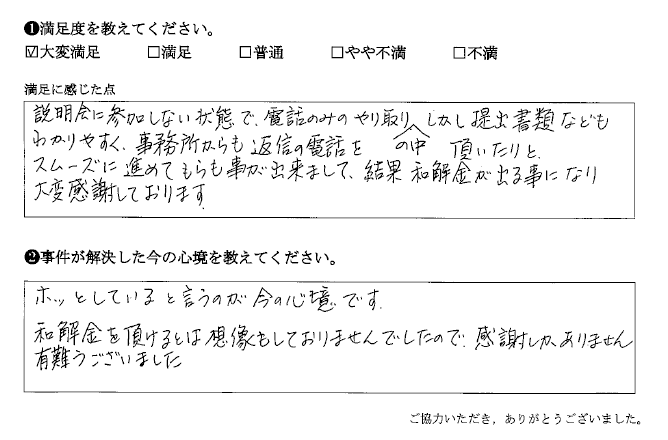 ❶満足度を教えてください。
☑大変満足 □満足 □普通 □やや不満 □不満
満足に感じた点
説明会に参加しない状態で、電話のみのやり取りの中 しかし提出書類なども
わかりやすく、事務所からも返信の電話を 頂いたりと、
スムーズに進めてもらも事が出来まして、結果 和解金が出る事になり
大変感謝しております
❷事件が解決した今の心境を教えてください。
ホッとしていると言うのが今の心境です。
和解金を頂けるとは想像もしておりませんでしたので、感謝しかありません
有難うございました
ご協力いただき，ありがとうございました。